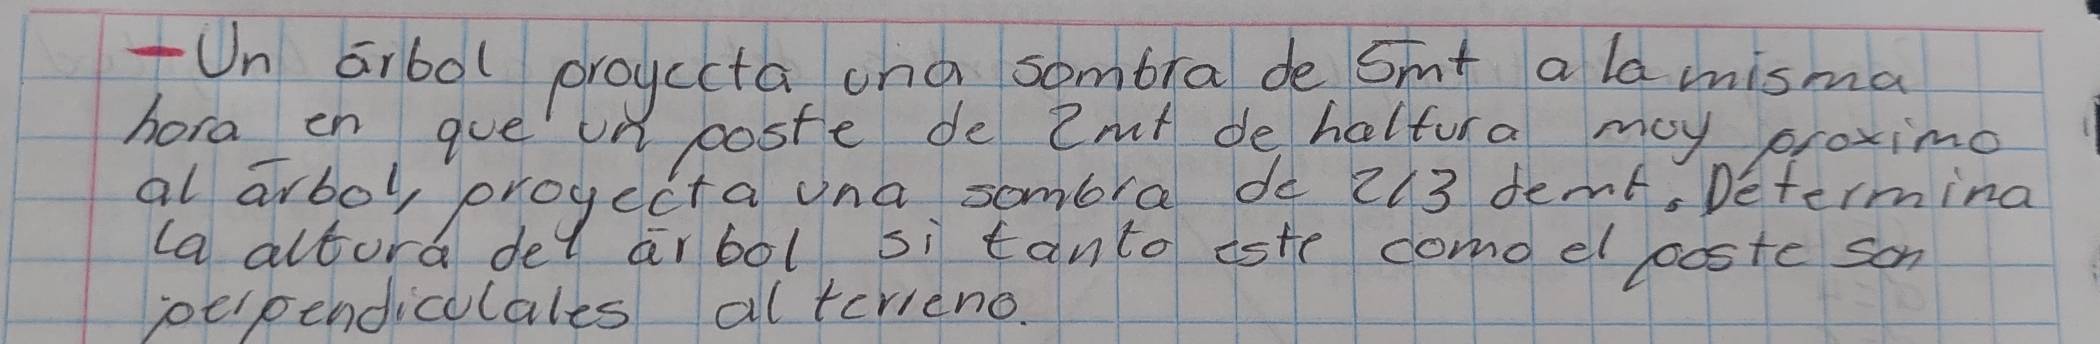 - Un árbol proyecta una sombra de 5mt a la misma
hora en que un poste de 2mt de haltura muy proximo
al árbol, proyecta una sombra de 2/3 de mt. Determina
la altura del árbol si tanto este como el poste son
perpendiculales al terreno.